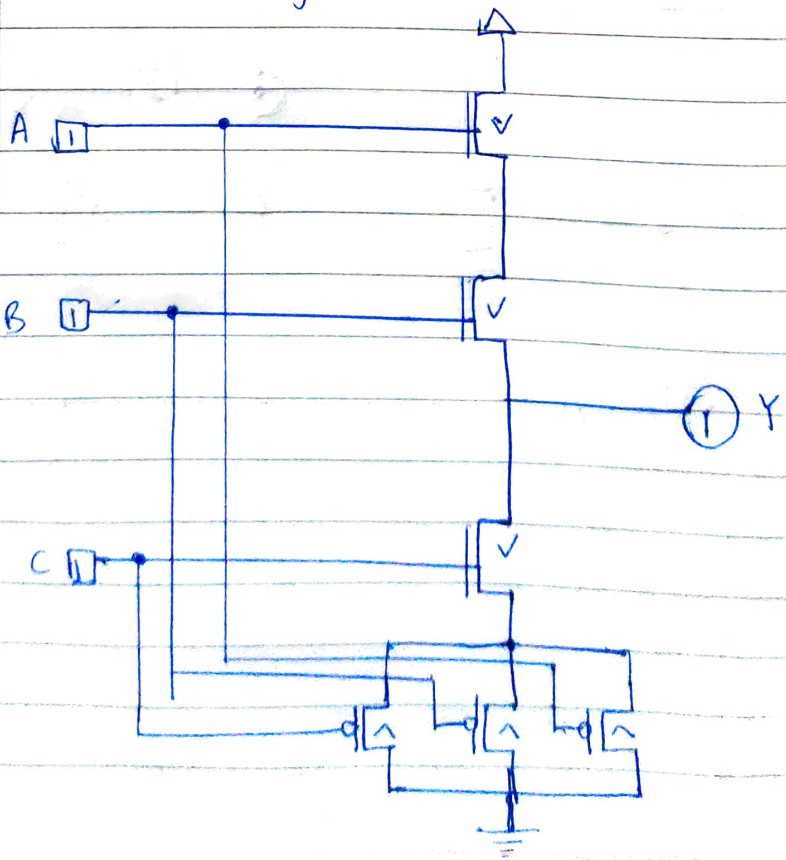 A 1
B 1
Y Y
C 1